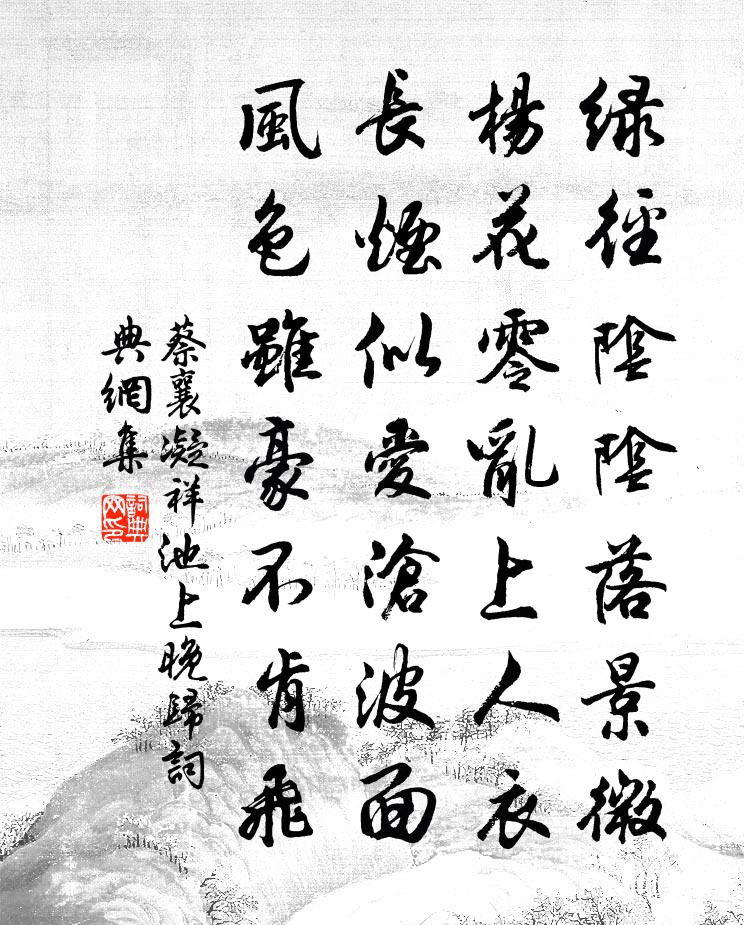 緑徑陰陰落景微
楊花零亂上人衣
長煙似愛滄波面
風色雖豪不肯飛
蔡襄凝祥池上晚歸詞
典網集
詞典
网印